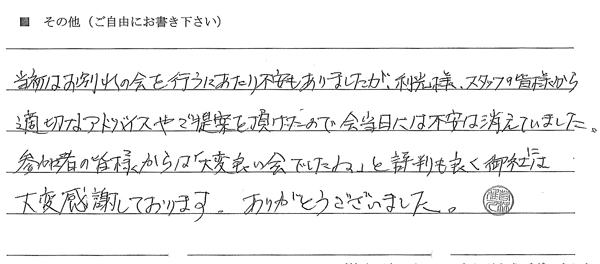 ■ その他（ご自由にお書き下さい）
当初はお別れの会を行うにあたり不安もありましたが、利光様、スタッフの皆様から
適切なアドバイスやご提案を頂けたので会当日には不安は消えていました。
参加者の皆様からは「大変良い会でしたね」と評判も良く御社には
大変感謝しております。ありがとうございました。